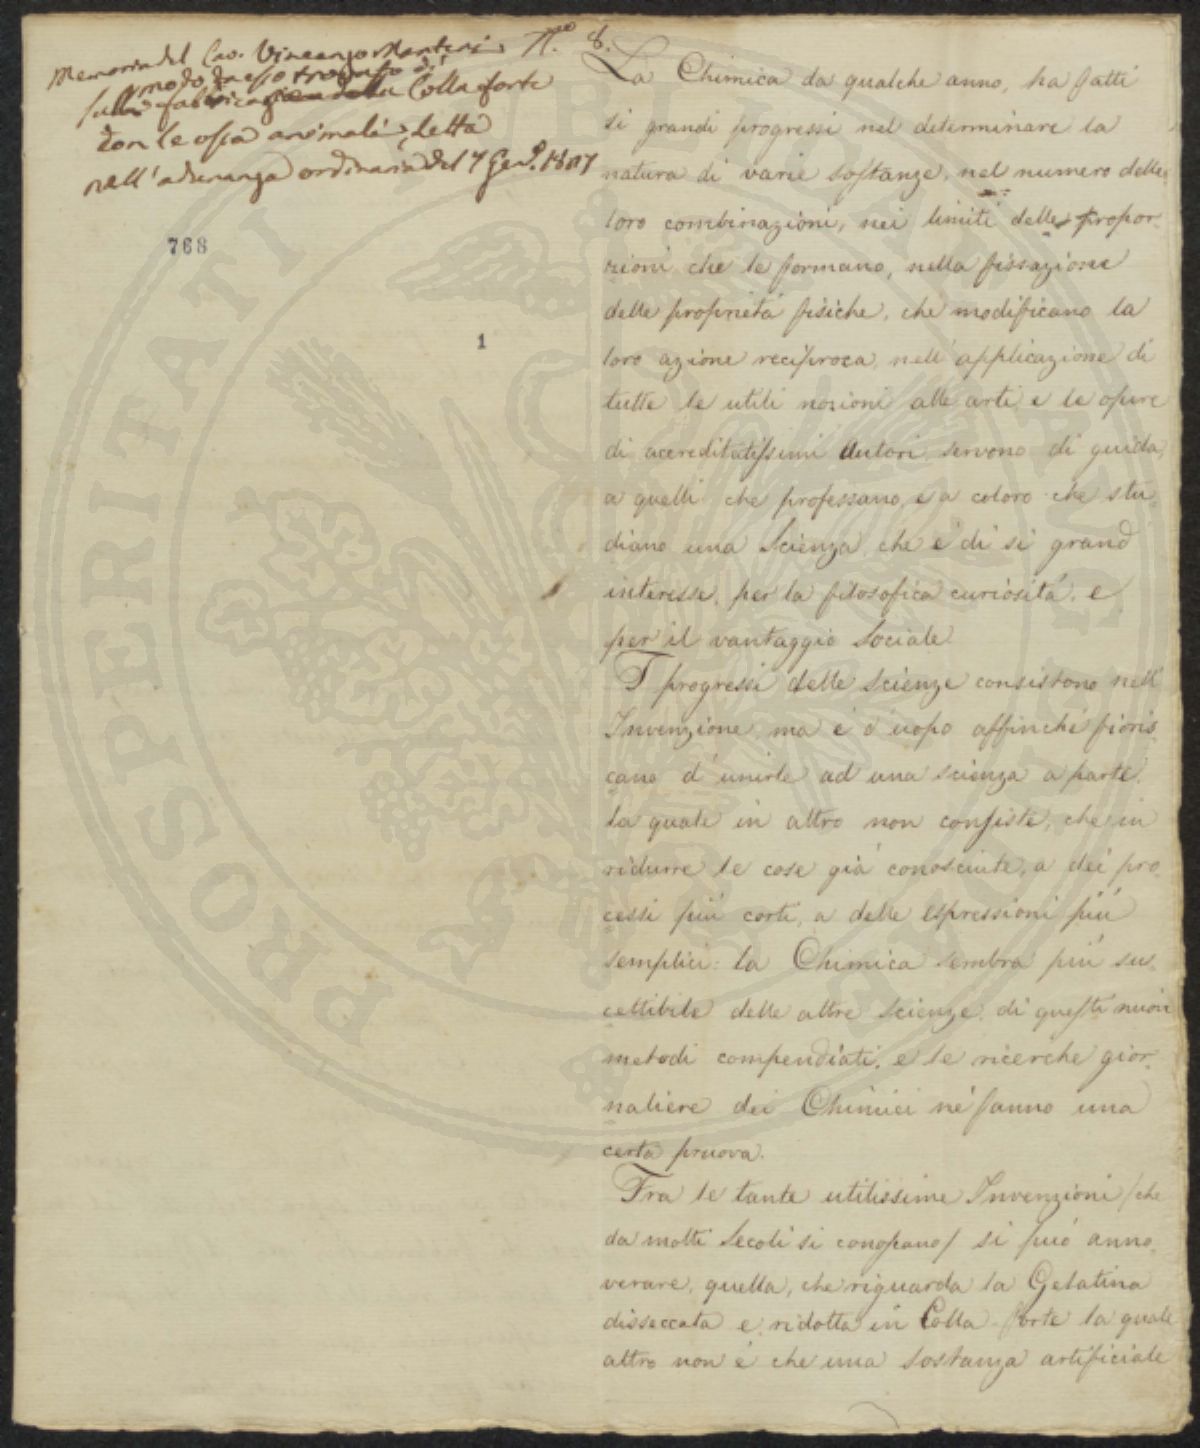 Memoria del Cav. Vincenzo Manteri N.ro 8.
modo da esso trovato di
sulla fabbricazione della Colla forte
con le ossa animali, Letta
nell'adunanza ordinaria del 7 Gen.o 1807
768
1
La Chimica da qualche anno, ha fatti
si grandi progressi nel determinare la
natura di varie sostanze, nel numero delle
loro combinazioni, nei limiti delle propor-
zioni che le formano, nella fissazione
delle proprietá fisiche, che modificano la
loro azione reciproca, nell'applicazione di
tutte le utili nozioni alle arti e le opere
di accreditatissimi Autori servono di guida,
a quelli che professano, e a coloro che stu-
diano una Scienza, che é di si grand
interesse, per la filosofica curiositá, e
per il vantaggio Sociale.
I progressi delle Scienze consistono nell'
Invenzione, ma é d'uopo affinché fioris-
cano d'unirle ad una scienza a parte,
la quale in altro non consiste, che in
ridurre le cose giá conosciute, a dei pro-
cessi piú corti, a delle espressioni piú
semplici: la Chimica sembra piú su-
cettibile delle altre Scienze, di questi nuovi
metodi compendiati, e le ricerche gior-
naliere dei Chimici né fanno una
certa pruova.
Fra le tante utilissime Invenzioni /che
da molti Secoli si conoscano/ si puó anno-
verare, quella, che riguarda la Gelatina
disseccata e ridotta in Colla-forte la quale
altro non é che una sostanza artificiale
PROSPERITATI PUBLICAE AUGENDAE